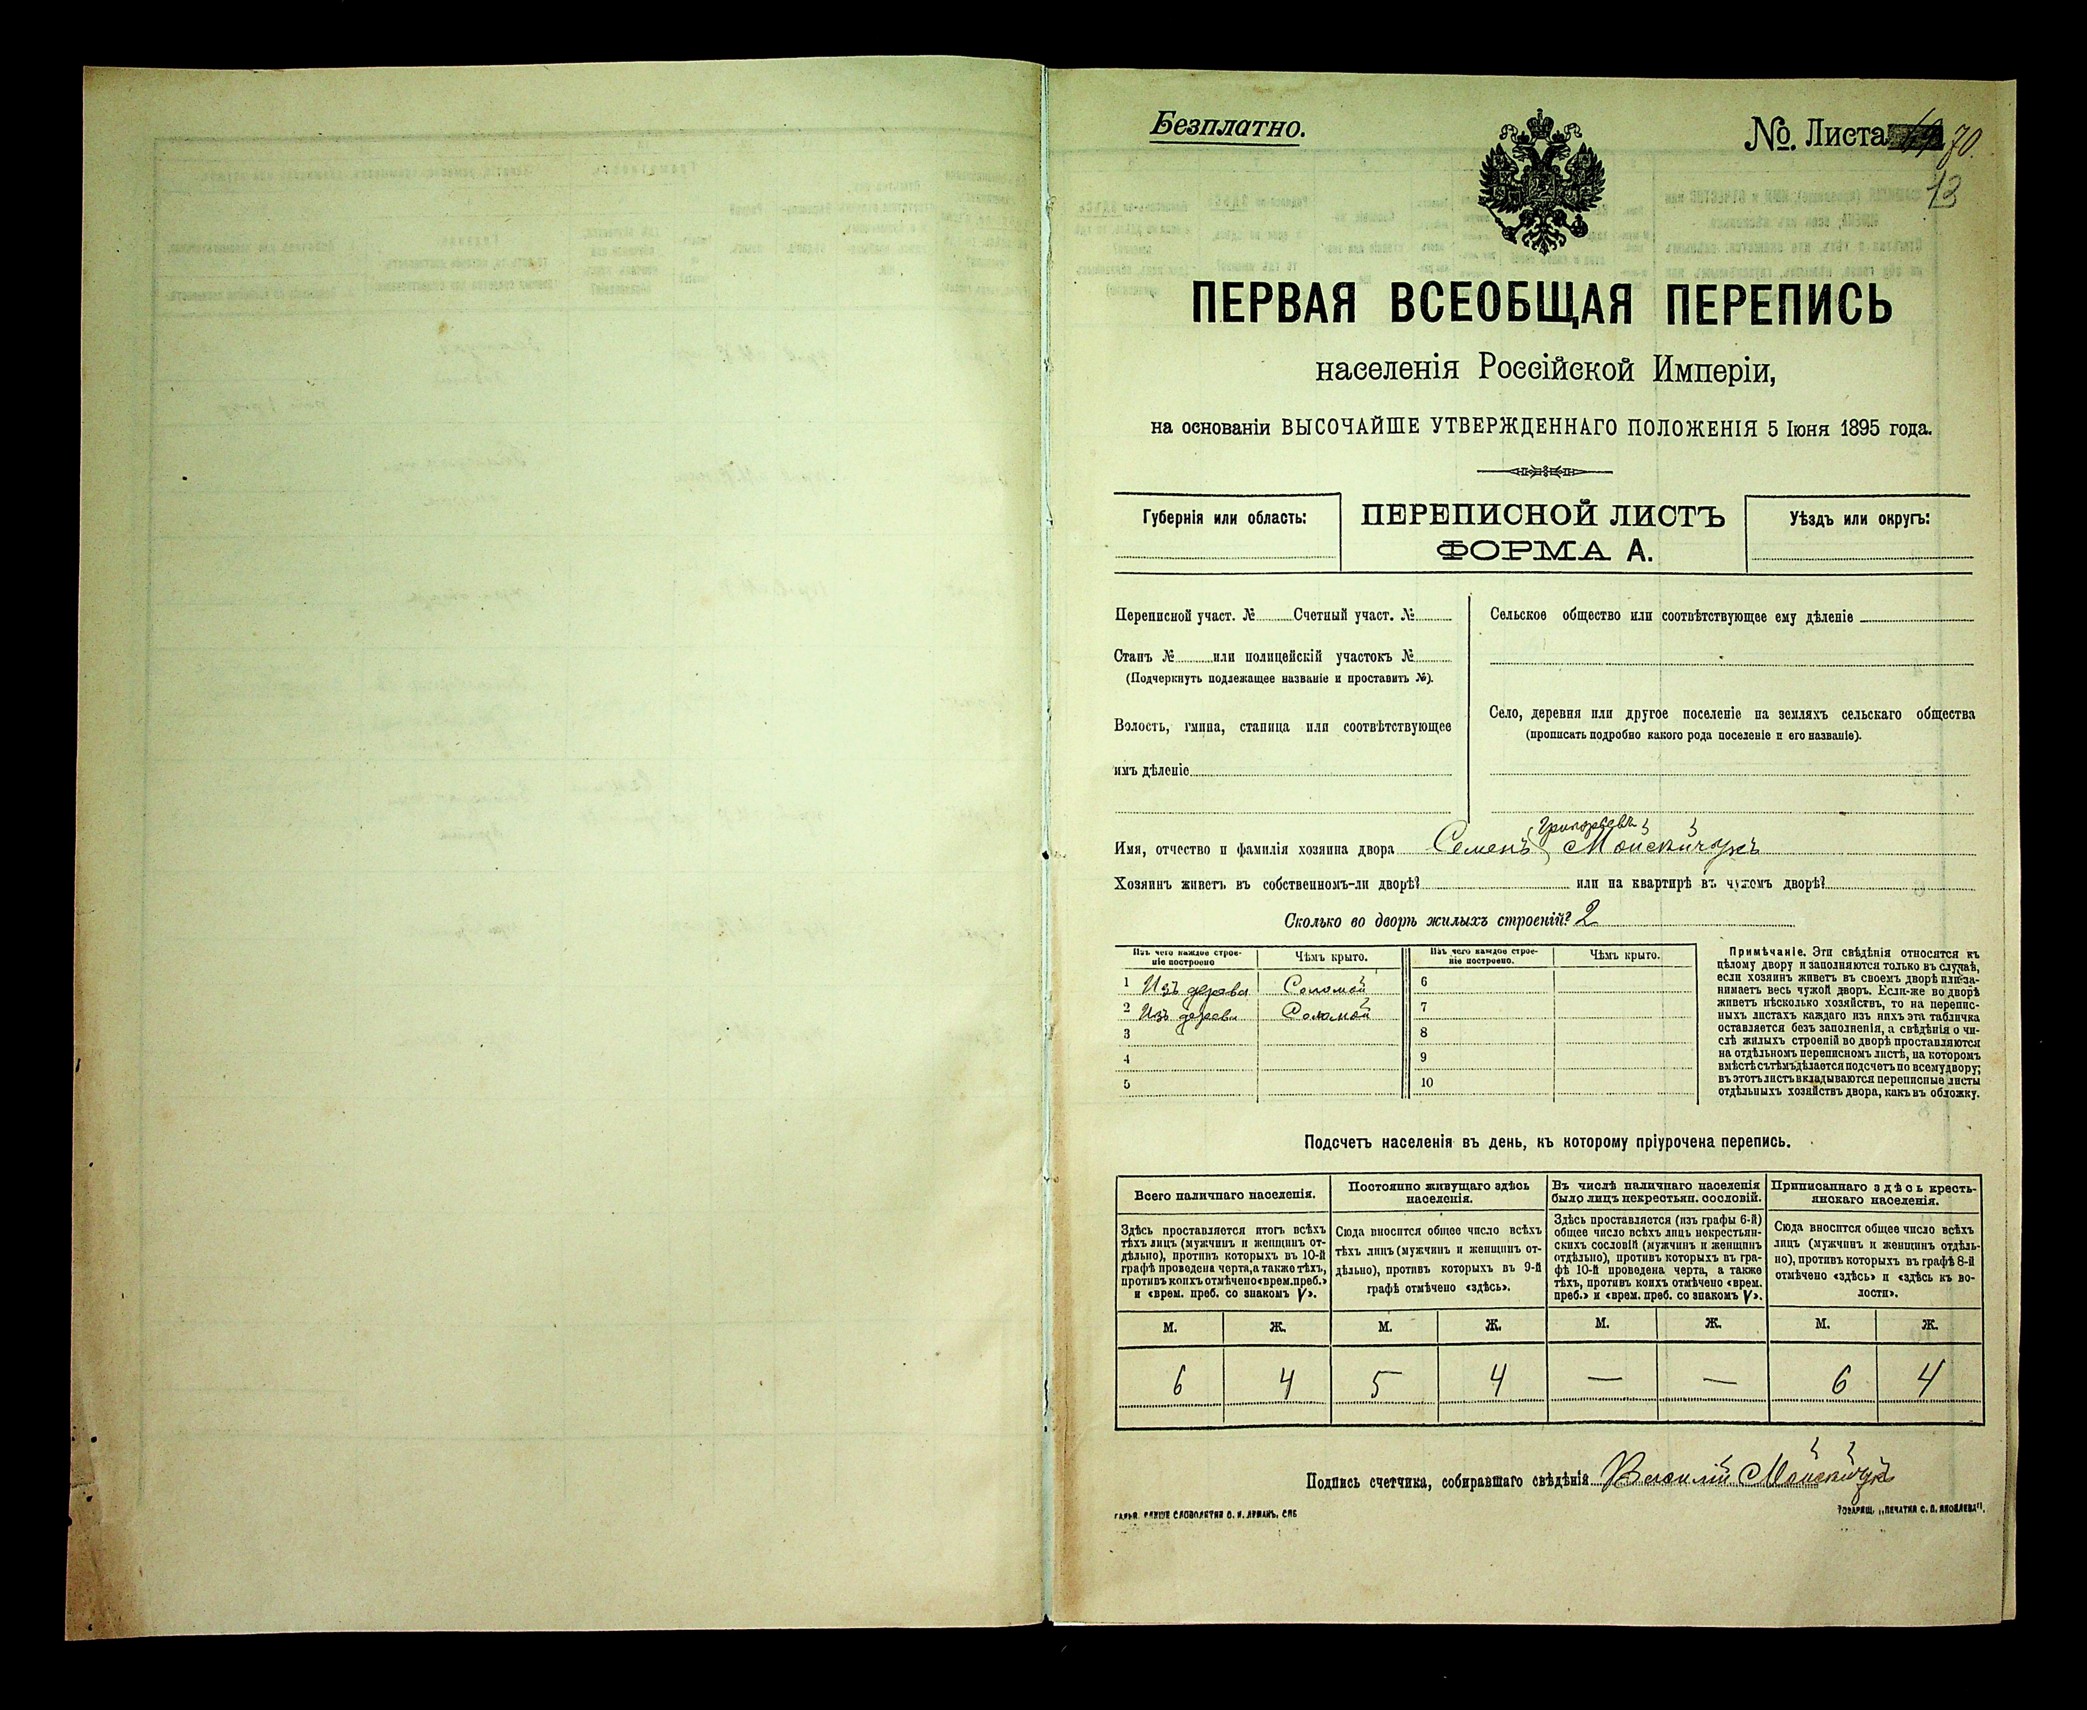 Безплатно.
№. Листа 70.
13
ПЕРВАЯ ВСЕОБЩАЯ ПЕРЕПИСЬ
населенія Россійской Имперіи,
на основаніи ВЫСОЧАЙШЕ УТВЕРЖДЕННАГО ПОЛОЖЕНІЯ 5 Іюня 1895 года.
Губернія или область:
ПЕРЕПИСНОЙ ЛИСТЪ
ФОРМА А.
Уѣздъ или округъ:
Переписной участ. № Счетный участ. №
Станъ № или полицейскій участокъ №
(Подчеркнуть подлежащее названіе и проставить №).
Волость, гмина, станица или соотвѣтствующее
имъ дѣленіе
Сельское общество или соотвѣтствующее ему дѣленіе
Село, деревня или другое поселеніе на земляхъ сельскаго общества
(прописать подробно какого рода поселеніе и его названіе).
Григорьевъ
Имя, отчество и фамилія хозяина двора Семенъ Мойсійчукъ
Хозяинъ живетъ въ собственномъ-ли дворѣ? или на квартирѣ въ чужомъ дворѣ?
Сколько во дворѣ жилыхъ строеній? 2
Изъ чего каждое строе-
ніе построено
Чѣмъ крыто.
Изъ чего каждое строе-
ніе построено.
Чѣмъ крыто.
1 Изъ дерева Соломой 6
2 Изъ дерева Соломой 7
3 8
4 9
5 10
Примѣчаніе. Эти свѣдѣнія относятся къ
цѣлому двору и заполняются только въ случаѣ,
если хозяинъ живетъ въ своемъ дворѣ или за-
нимаетъ весь чужой дворъ. Если-же во дворѣ
живетъ нѣсколько хозяйствъ, то на перепис-
ныхъ листахъ каждаго изъ нихъ эта табличка
оставляется безъ заполненія, а свѣдѣнія о чи-
слѣ жилыхъ строеній во дворѣ проставляются
на отдѣльномъ переписномъ листѣ, на которомъ
вмѣстѣ съ тѣмъ дѣлается подсчетъ по всему двору;
въ этотъ листъ вкладываются переписные листы
отдѣльныхъ хозяйствъ двора, какъ въ обложку.
Подсчетъ населенія въ день, къ которому пріурочена перепись.
Всего наличнаго населенія.
Здѣсь проставляется итогъ всѣхъ
тѣхъ лицъ (мужчинъ и женщинъ от-
дѣльно), противъ которыхъ въ 10-й
графѣ проведена черта, а также тѣхъ,
противъ коихъ отмѣчено «врем. преб.»
и «врем. преб. со знакомъ V».
Постоянно живущаго здѣсь
населенія.
Сюда вносится общее число всѣхъ
тѣхъ лицъ (мужчинъ и женщинъ от-
дѣльно), противъ которыхъ въ 9-й
графѣ отмѣчено «здѣсь».
Въ числѣ наличнаго населенія
было лицъ некрестьян. сословій.
Здѣсь проставляется (изъ графы 6-й)
общее число всѣхъ лицъ некрестьян-
скихъ сословій (мужчинъ и женщинъ
отдѣльно), противъ которыхъ въ гра-
фѣ 10-й проведена черта, а также
тѣхъ, противъ коихъ отмѣчено «врем.
преб.» и «врем. преб. со знакомъ V».
Приписаннаго здѣсь кресть-
янскаго населенія.
Сюда вносится общее число всѣхъ
лицъ (мужчинъ и женщинъ отдѣль-
но), противъ которыхъ въ графѣ 8-й
отмѣчено «здѣсь» и «здѣсь къ во-
лости».
М. Ж. М. Ж. М. Ж. М. Ж.
6 4 5 4 — — 6 4
Подпись счетчика, собиравшаго свѣдѣнія Василій Мойсійчукъ
ТОВАРИЩ. „ПЕЧАТНЯ С. П. ЯКОВЛЕВА".